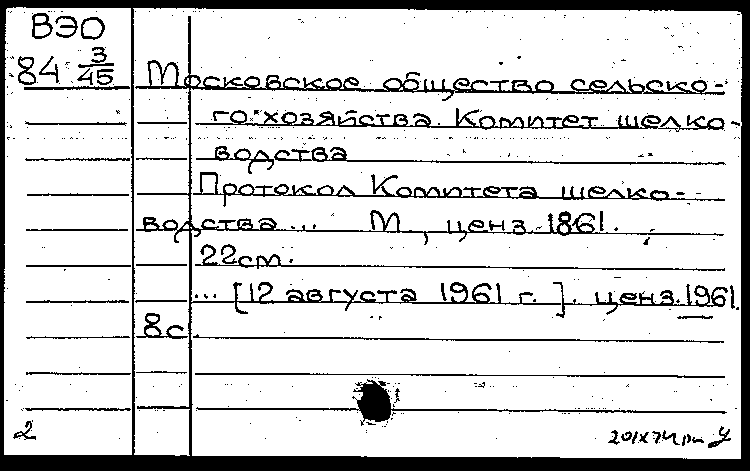 ВЭО
84 3/45
Московское общество сельско-
го хозяйства. Комитет шелко-
водства
Протокол Комитета шелко-
водства... М., ценз. 1861.
22см.
... [12 августа 1961 г.]. ценз. 1961.
8с.
2